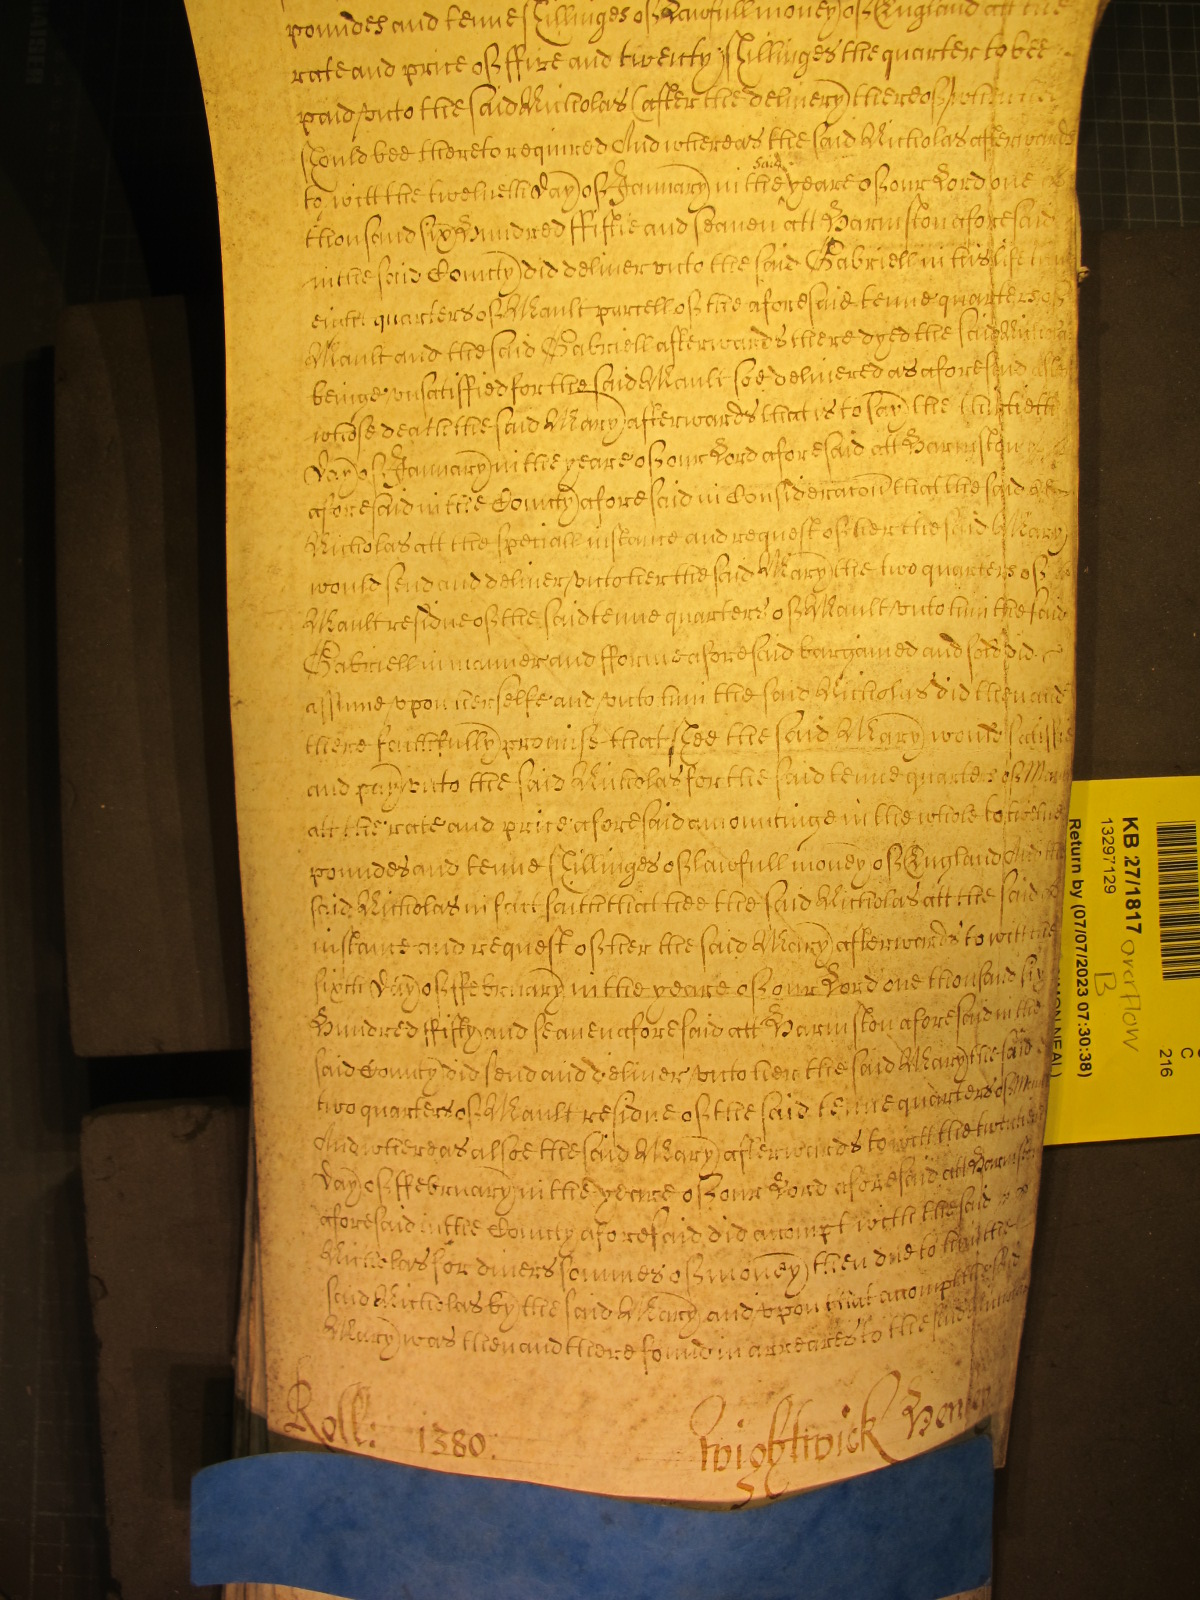 poundes and tenne shillinges of lawfull money of England att the
rate and price of ffive and twenty shillinges the quarter to bee
paid unto the said Nicholas (after the delivery) thereof when hee
should bee thereto required And whereas the said Nicholas afterwards
to witt the twelueth day of January in the said yeare of our Lord one
thousand six Hundred ffiftie and seaven att Harmston aforesaid
in the said County did deliver unto the said Gabriell in his life time
eight quarters of Mault parcell of the aforesaid tenne quarters of
Mault and the said Gabriell afterwards there dyed the said Nicholas
beinge unsatisfied for the said Mault soe delivered as aforesaid after
whose death the said Mary afterwards that is to say the thirtieth
day of January in the yeare of our Lord aforesaid att Harmston
aforesaid in the County aforesaid in Consideracon that the said
Nicholas att the speciall instance and request of her the said Mary
would send and deliver unto her the said Mary the two quarters of
Mault residue of the said tenne quarters of Mault unto him the said
Gabriell in manner and fforme aforesaid bargained and sold did
assume upon herselfe and unto him the said Nicholas did then and
there faithfully promise that shee the said Mary would satisfie
and pay unto the said Nicholas for the said tenne quarters of Mault
att the rate and price aforesaid amountinge in the whole to twelve
poundes and tenne shillinges of lawfull money of England And the
said Nicholas in fact saith that hee the said Nicholas att the said
instance and request of her the said Mary afterwards to witt the
sixth day of ffebruary in the yeare of our Lord one thousand six
Hundred ffifty and seaven aforesaid att Harmston aforesaid in the
said County did send and deliver unto her the said Mary the said
two quarters of Mault residue of the said tenne quarters of Mault
And whereas alsoe the said Mary afterwards to witt the twentieth
day of ffebruary in the yeare of our Lord aforesaid att Harmston
aforesaid in the County aforesaid did accompt with the said
Nicholas for divers sommes of money then due to him the
said Nicholas by the said Mary and upon that accompt the said
Mary was then and there found in arreares to the said Nicholas
Roll: 1380. Wightwick
KB 27/1817 overflow
13297129 B
Return by (07/07/2023 07:30:38)
C
216